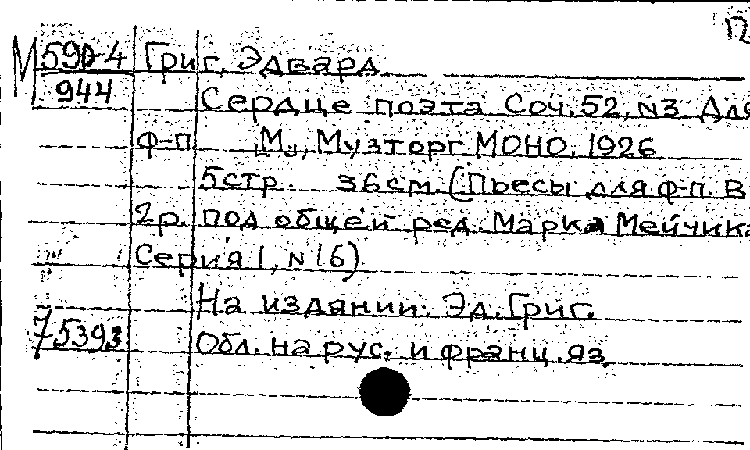 М 590-4 Григ, Эдвард
944 Сердце поэта Соч. 52, №3 Для
ф-п М., Музторг МОНО, 1926
5 стр. 36 см (Пьесы для ф-п. В
2 р. под общей ред. Марка Мейчика
Серия 1, №16)
На издании: Эд. Григ.
75393 Обл. на рус. и франц. яз